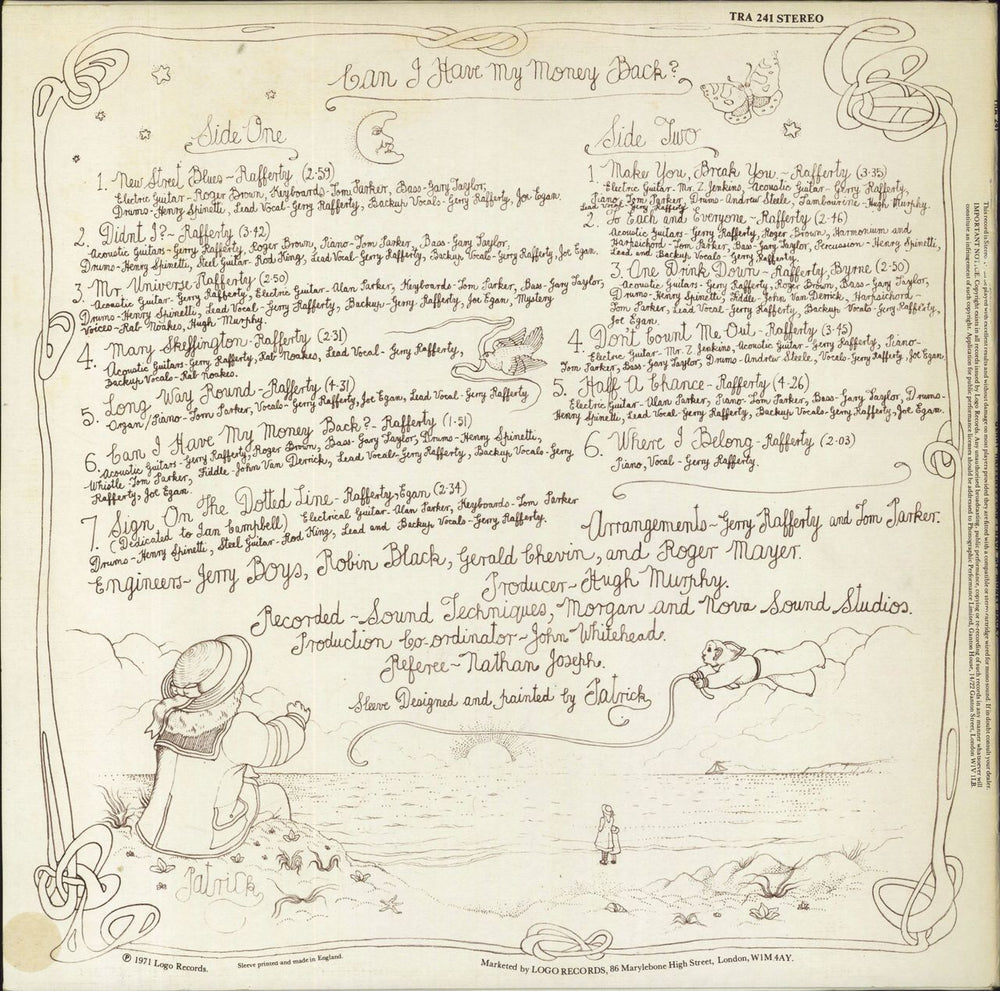 TRA 241 STEREO
Can I Have My Money Back?
Side One
1. New Street Blues~Rafferty (2:59)
Electric Guitar-Roger Brown, Keyboards-Tom Parker, Bass-Gary Taylor,
Drums-Henry Spinetti, Lead Vocal-Gerry Rafferty, Backup Vocals-Gerry Rafferty, Joe Egan.
2. Didnt I?~Rafferty (3·42)
Acoustic Guitars-Gerry Rafferty, Roger Brown, Piano-Tom Parker, Bass-Gary Taylor,
Drums-Henry Spinetti, Steel Guitar-Rod King, Lead Vocal-Gerry Rafferty, Backup Vocals-Gerry Rafferty, Joe Egan.
3. Mr. Universe-Rafferty (2·50)
Acoustic Guitar-Gerry Rafferty, Electric Guitar-Alan Parker, Keyboards-Tom Parker, Bass-Gary Taylor,
Drums-Henry Spinetti, Lead Vocal-Gerry Rafferty, Backup-Gerry Rafferty, Joe Egan, Mystery
Voices-Rab Noakes, Hugh Murphy.
4. Mary Skeffington-Rafferty (2·31)
Acoustic Guitars-Gerry Rafferty, Rab Noakes, Lead Vocal-Gerry Rafferty,
Backup Vocals-Rab Noakes.
5. Long Way Round-Rafferty (4·31)
Organ/Piano-Tom Parker, Vocals-Gerry Rafferty, Joe Egan, Lead Vocal-Gerry Rafferty
6. Can I Have My Money Back?-Rafferty (1·51)
Acoustic Guitars-Gerry Rafferty, Roger Brown, Bass-Gary Taylor, Drums-Henry Spinetti,
Whistle Tom Parker, Fiddle-John Van Derrick, Lead Vocals-Gerry Rafferty, Backup Vocals-Gerry
Rafferty, Joe Egan.
7. Sign On The Dotted Line-Rafferty, Egan (2·34)
(Dedicated to Ian Campbell) Electrical Guitar-Alan Parker, Keyboards-Tom Parker
Drums-Henry Spinetti, Steel Guitar-Rod King, Lead and Backup Vocals-Gerry Rafferty.
Side Two
1. Make You, Break You.~Rafferty (3·35)
Electric Guitar-Mr. Z Jenkins, Acoustic Guitar-Gerry Rafferty,
Piano-Tom Parker, Drums-Andrew Steele, Tambourine-Hugh Murphy.
Lead Vocal-Gerry Rafferty
2. To Each and Everyone-Rafferty (2·46)
Acoustic Guitars-Gerry Rafferty, Roger Brown, Harmonium and
Harpsichord-Tom Parker, Bass-Gary Taylor, Percussion-Henry Spinetti,
Lead and Backup Vocals-Gerry Rafferty.
3. One Drink Down-Rafferty, Byrne (2·50)
Acoustic Guitars-Gerry Rafferty, Roger Brown, Bass-Gary Taylor,
Drums-Henry Spinetti, Fiddle-John Van Derrick, Harpsichord-
Tom Parker, Lead Vocal-Gerry Rafferty, Backup Vocals-Gerry Rafferty,
Joe Egan.
4. Don't Count Me Out-Rafferty (3·45)
Electric Guitar-Mr. Z Jenkins, Acoustic Guitar-Gerry Rafferty, Piano-
Tom Parker, Bass-Gary Taylor, Drums-Andrew Steele, Vocals-Gerry Rafferty, Joe Egan.
5. Half A Chance-Rafferty (4-26)
Electric Guitar-Alan Parker, Piano-Tom Parker, Bass-Gary Taylor, Drums-
Henry Spinetti, Lead Vocal-Gerry Rafferty, Backup Vocals-Gerry Rafferty, Joe Egan.
6. Where I Belong-Rafferty (2-03)
Piano, Vocal-Gerry Rafferty.
Arrangements~Gerry Rafferty and Tom Parker.
Engineers~Jerry Boys, Robin Black, Gerald Chevin, and Roger Mayer.
Producer~Hugh Murphy.
Recorded~Sound Techniques, Morgan and Nova Sound Studios.
Production Co-ordinator~John Whitehead.
Referee~Nathan Joseph.
Sleeve Designed and painted by Patrick
Patrick
℗ 1971 Logo Records.
Sleeve printed and made in England.
Marketed by LOGO RECORDS, 86 Marylebone High Street, London, W1M 4AY.